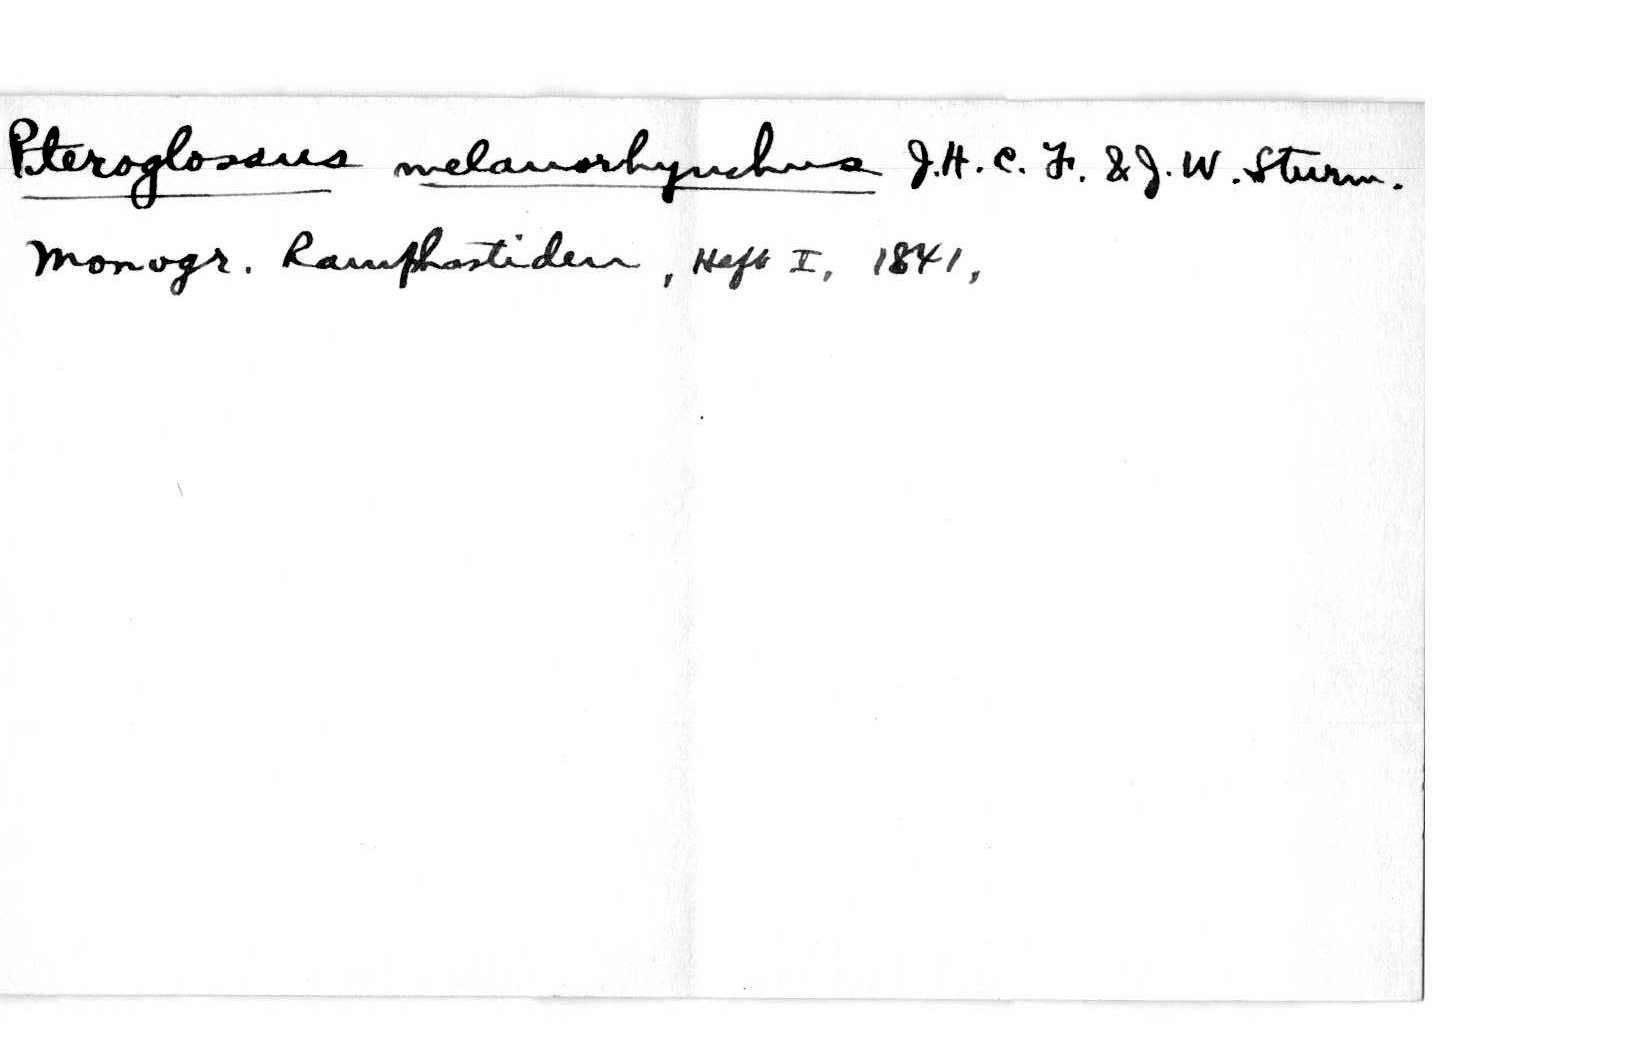 Pteroglossus melanorhynchus J.H.C.F. & J.W. Sturm.
Monogr. Ramphastiden, Heft I, 1841,